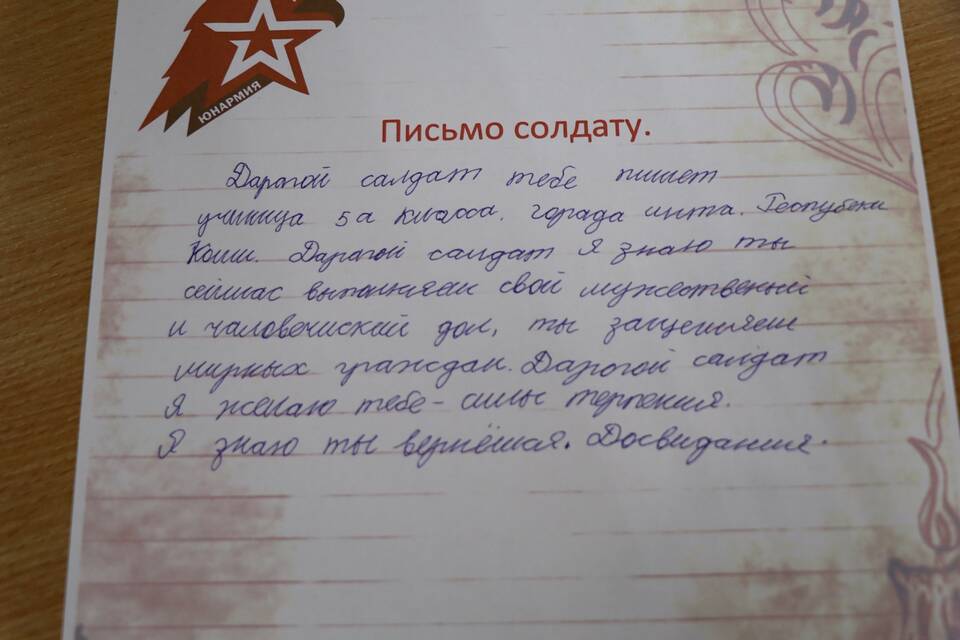 ЮНАРМИЯ
Письмо солдату.
Дарогой салдат тебе пишет
ученица 5а класса. города инта. Республеки
Коми. Дарагой салдат Я знаю ты
сейчас выполняеш свой мужественый
и чаловечиский дол, ты защещяеш
мирных граждан. Дарогой салдат
Я желаю тебе - силы терпения.
Я знаю ты вернёшся. Досвидания.